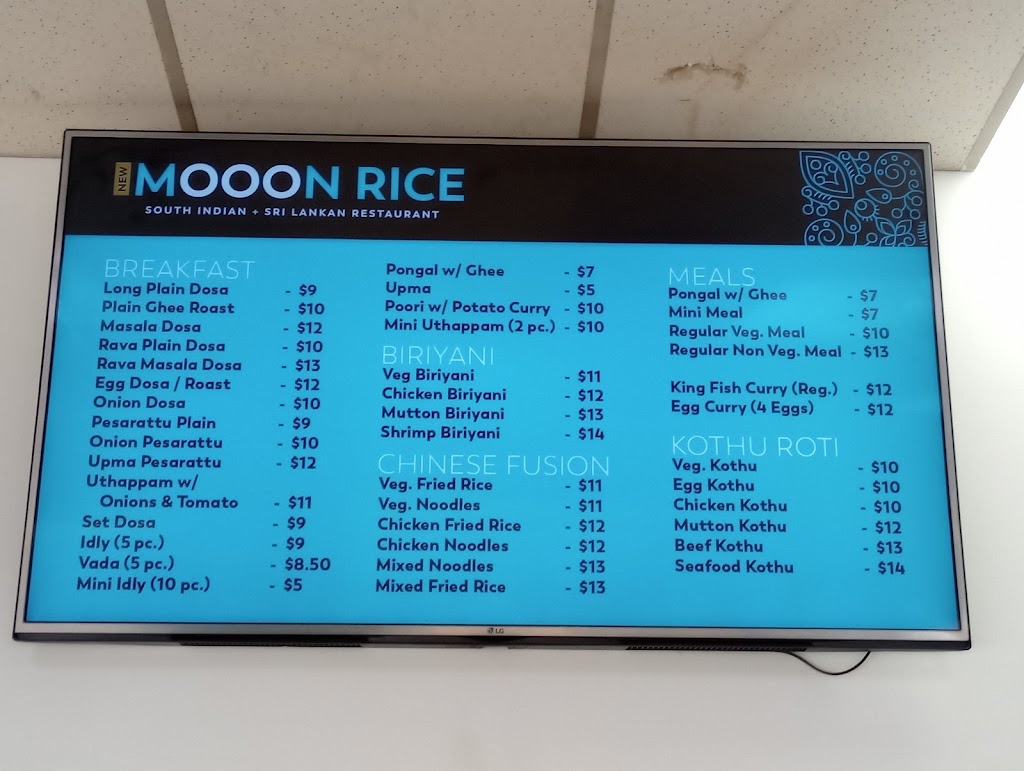 NEW
MOOON RICE
SOUTH INDIAN + SRI LANKAN RESTAURANT
BREAKFAST
Long Plain Dosa - $9
Plain Ghee Roast - $10
Masala Dosa - $12
Rava Plain Dosa - $10
Rava Masala Dosa - $13
Egg Dosa / Roast - $12
Onion Dosa - $10
Pesarattu Plain - $9
Onion Pesarattu - $10
Upma Pesarattu - $12
Uthappam w/
Onions & Tomato - $11
Set Dosa - $9
Idly (5 pc.) - $9
Vada (5 pc.) - $8.50
Mini Idly (10 pc.) - $5
Pongal w/ Ghee - $7
Upma - $5
Poori w/ Potato Curry - $10
Mini Uthappam (2 pc.) - $10
BIRIYANI
Veg Biriyani - $11
Chicken Biriyani - $12
Mutton Biriyani - $13
Shrimp Biriyani - $14
CHINESE FUSION
Veg. Fried Rice - $11
Veg. Noodles - $11
Chicken Fried Rice - $12
Chicken Noodles - $12
Mixed Noodles - $13
Mixed Fried Rice - $13
MEALS
Pongal w/ Ghee - $7
Mini Meal - $7
Regular Veg. Meal - $10
Regular Non Veg. Meal - $13
King Fish Curry (Reg.) - $12
Egg Curry (4 Eggs) - $12
KOTHU ROTI
Veg. Kothu - $10
Egg Kothu - $10
Chicken Kothu - $10
Mutton Kothu - $12
Beef Kothu - $13
Seafood Kothu - $14
LG